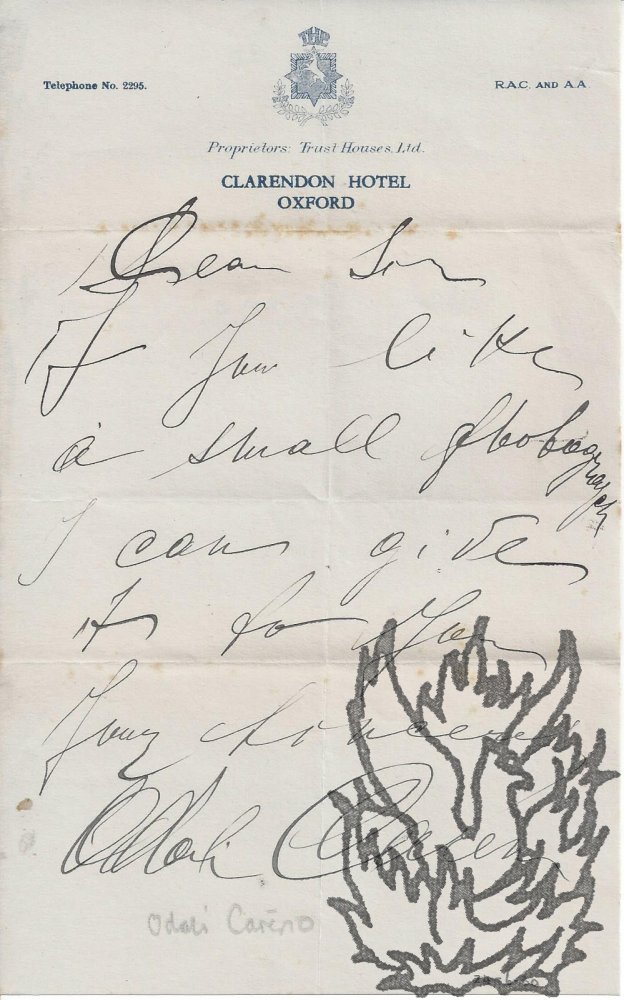 THP
Telephone No. 2295.
R.A.C. AND A.A.
Proprietors: Trust Houses, Ltd.
CLARENDON HOTEL
OXFORD
Dear Sir
If You like
a small photograph
I can give
it to You
Your sincerely
Odali Careno
Odali Careño